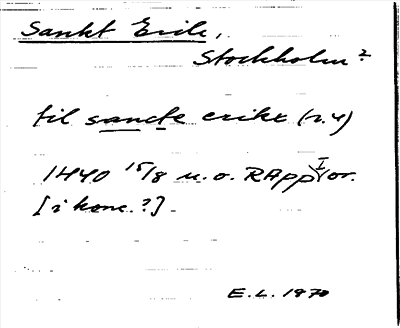 Sankt Erik,
Stockholm?
til sancte erike (r. 4)
1440 15/8 u. o. RApp I or.
[i konc. ?]
E. L. 1970